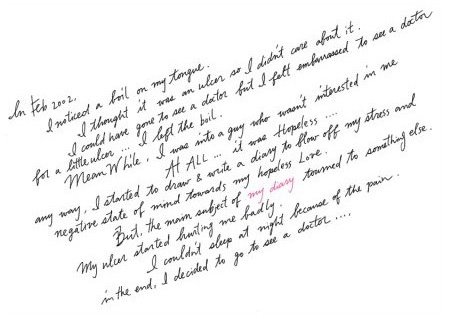 In Feb 2002,
I noticed a boil on my tongue.
I thought it was an ulcer so I didn't care about it.
I could have gone to see a doctor but I felt embarrassed to see a doctor
for a little ulcer ... I left the boil.
Mean While, I was into a guy who wasn't interested in me
At All ... it was Hopeless ....
any way, I started to draw & write a diary to blow off my stress and
negative state of mind towards my hopeless Love.
But, the main subject of my diary tourned to something else.
My ulcer started hurting me badly.
I couldn't sleep at night because of the pain.
in the end, I decided to go to see a doctor ....